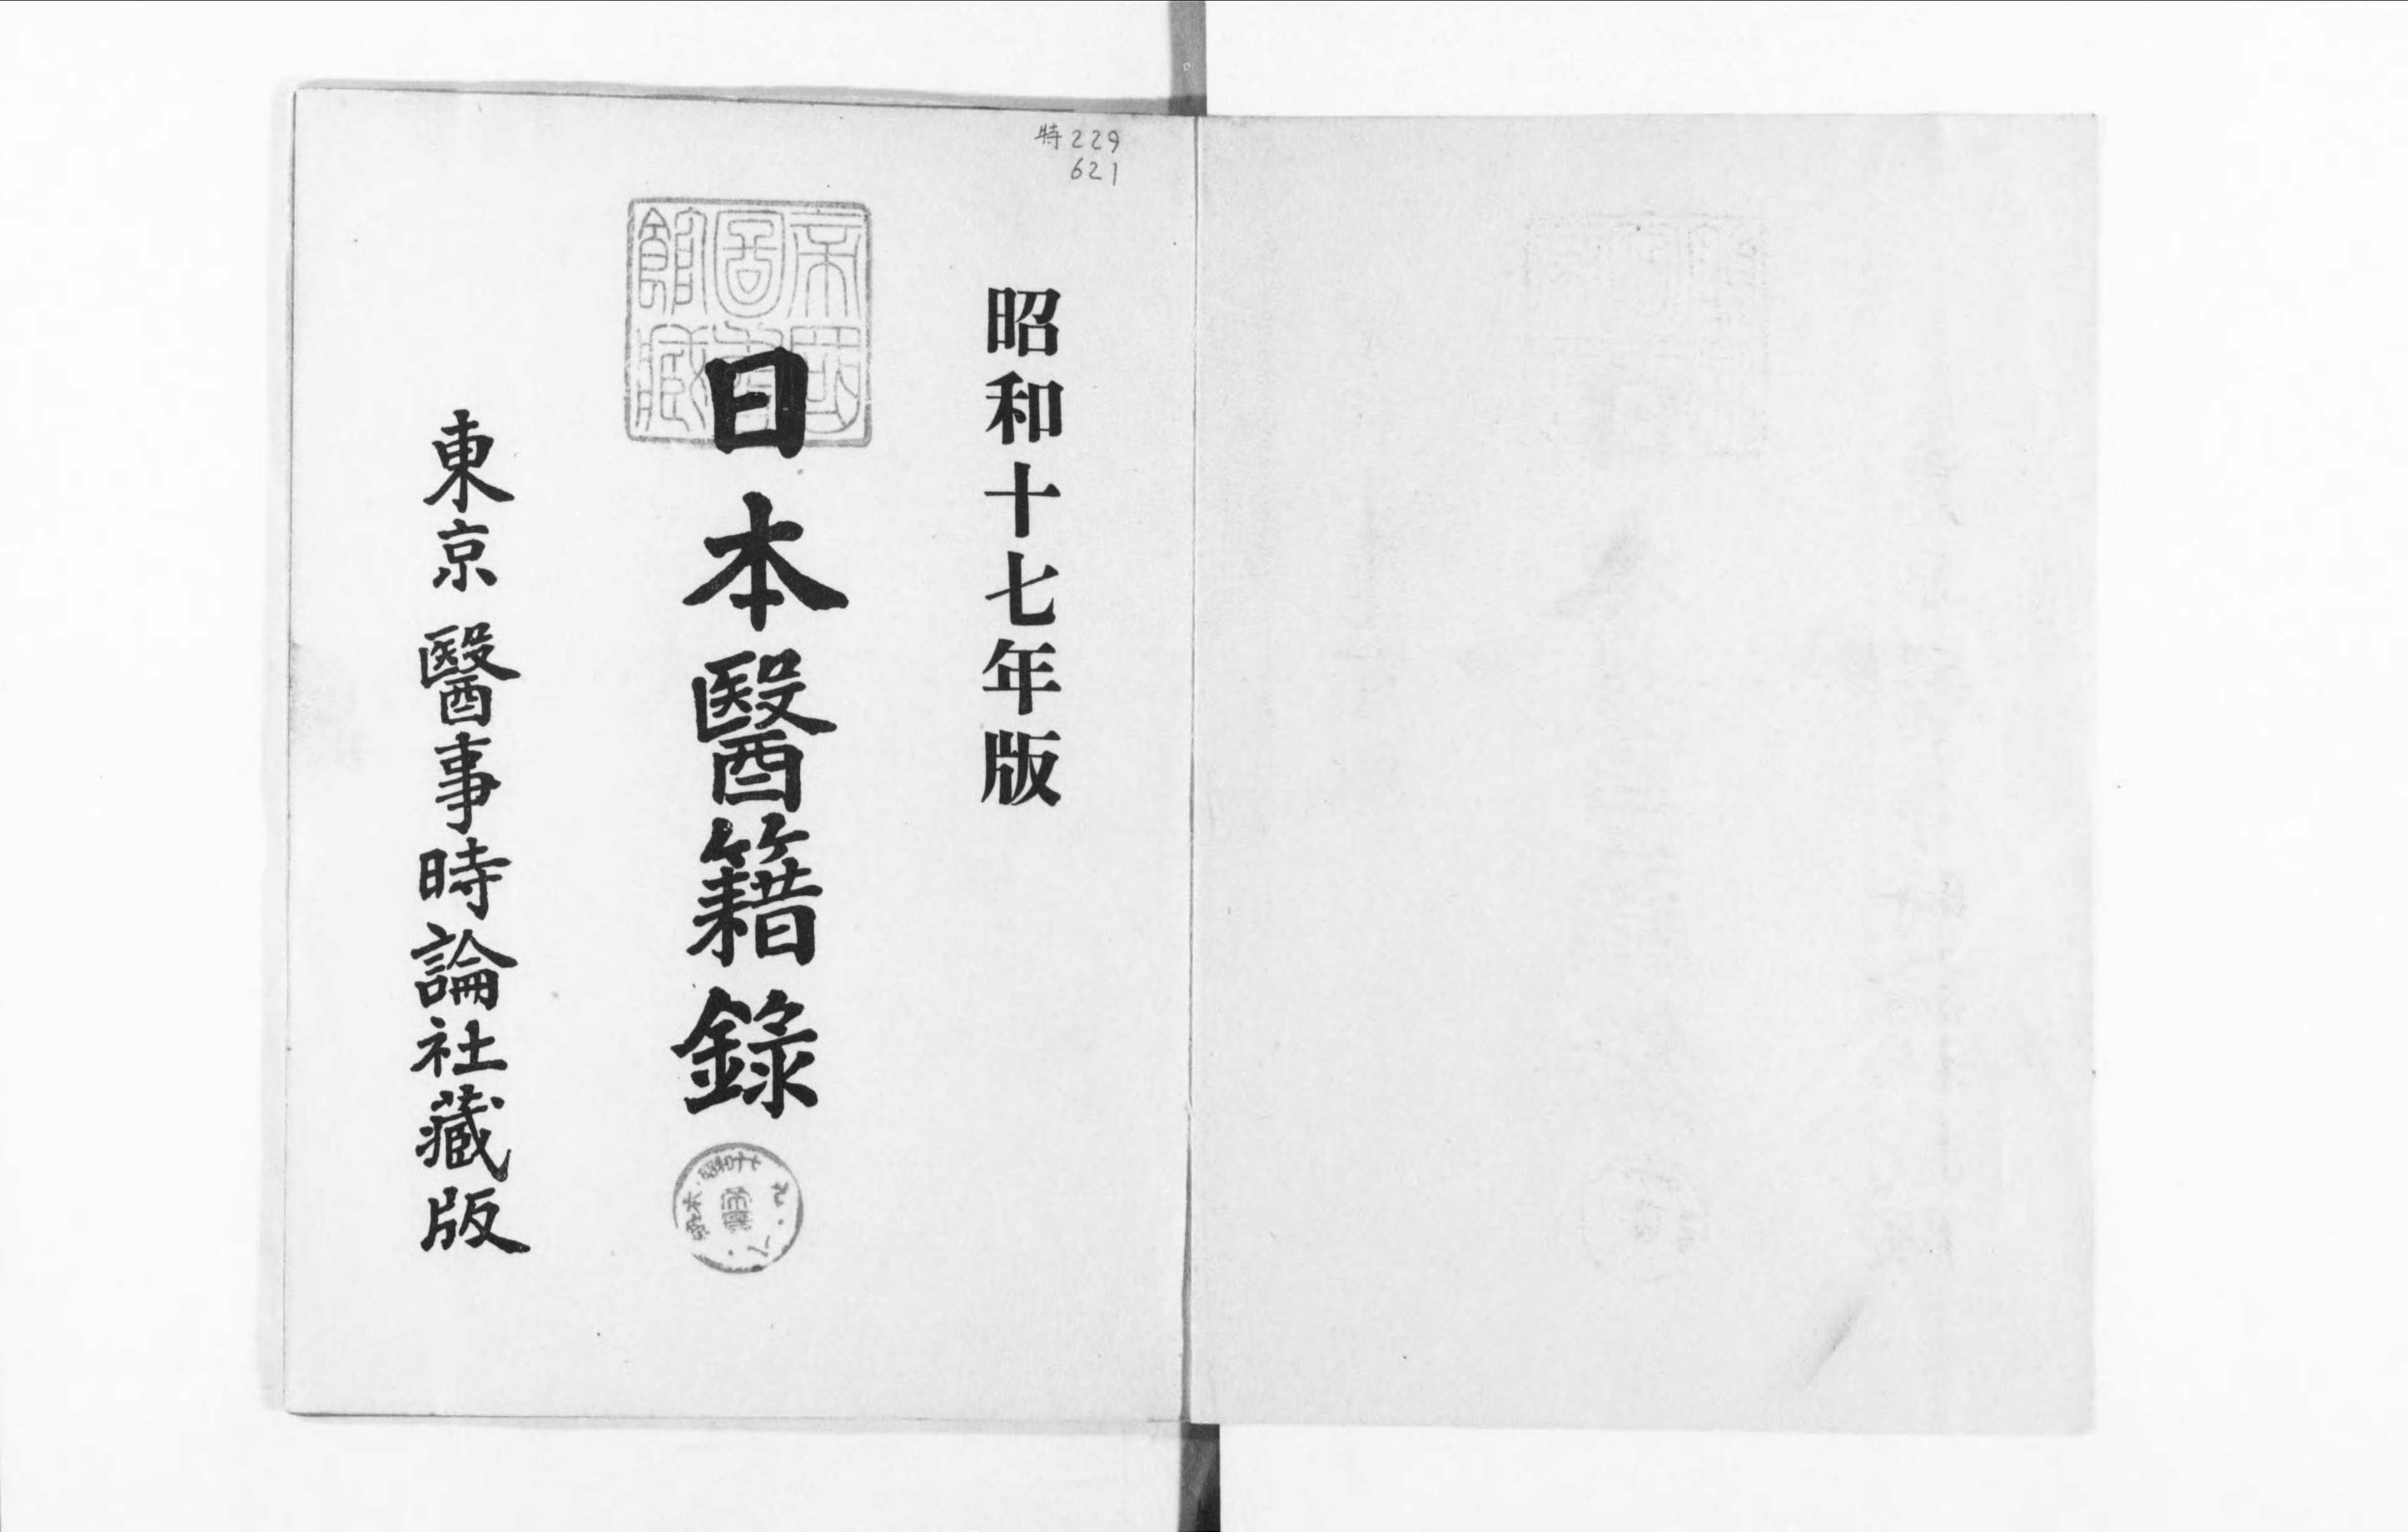 特229
621
昭和十七年版
日本醫籍錄
東京醫事時論社藏版
帝國
圖書
館藏